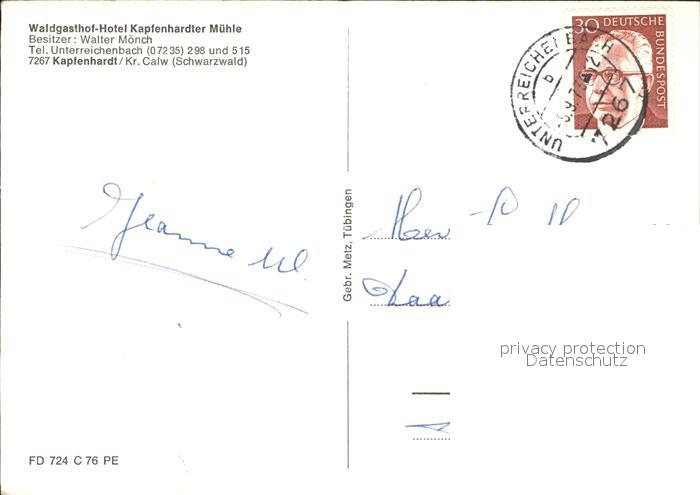 Waldgasthof-Hotel Kapfenhardter Mühle
Besitzer: Walter Mönch
Tel. Unterreichenbach (07235) 298 und 515
7267 Kapfenhardt/Kr. Calw (Schwarzwald)
30 DEUTSCHE
BUNDESPOST
UNTERREICHENBACH
b
7267
Jeanne
Gebr. Metz, Tübingen
privacy protection
Datenschutz
FD 724 C 76 PE